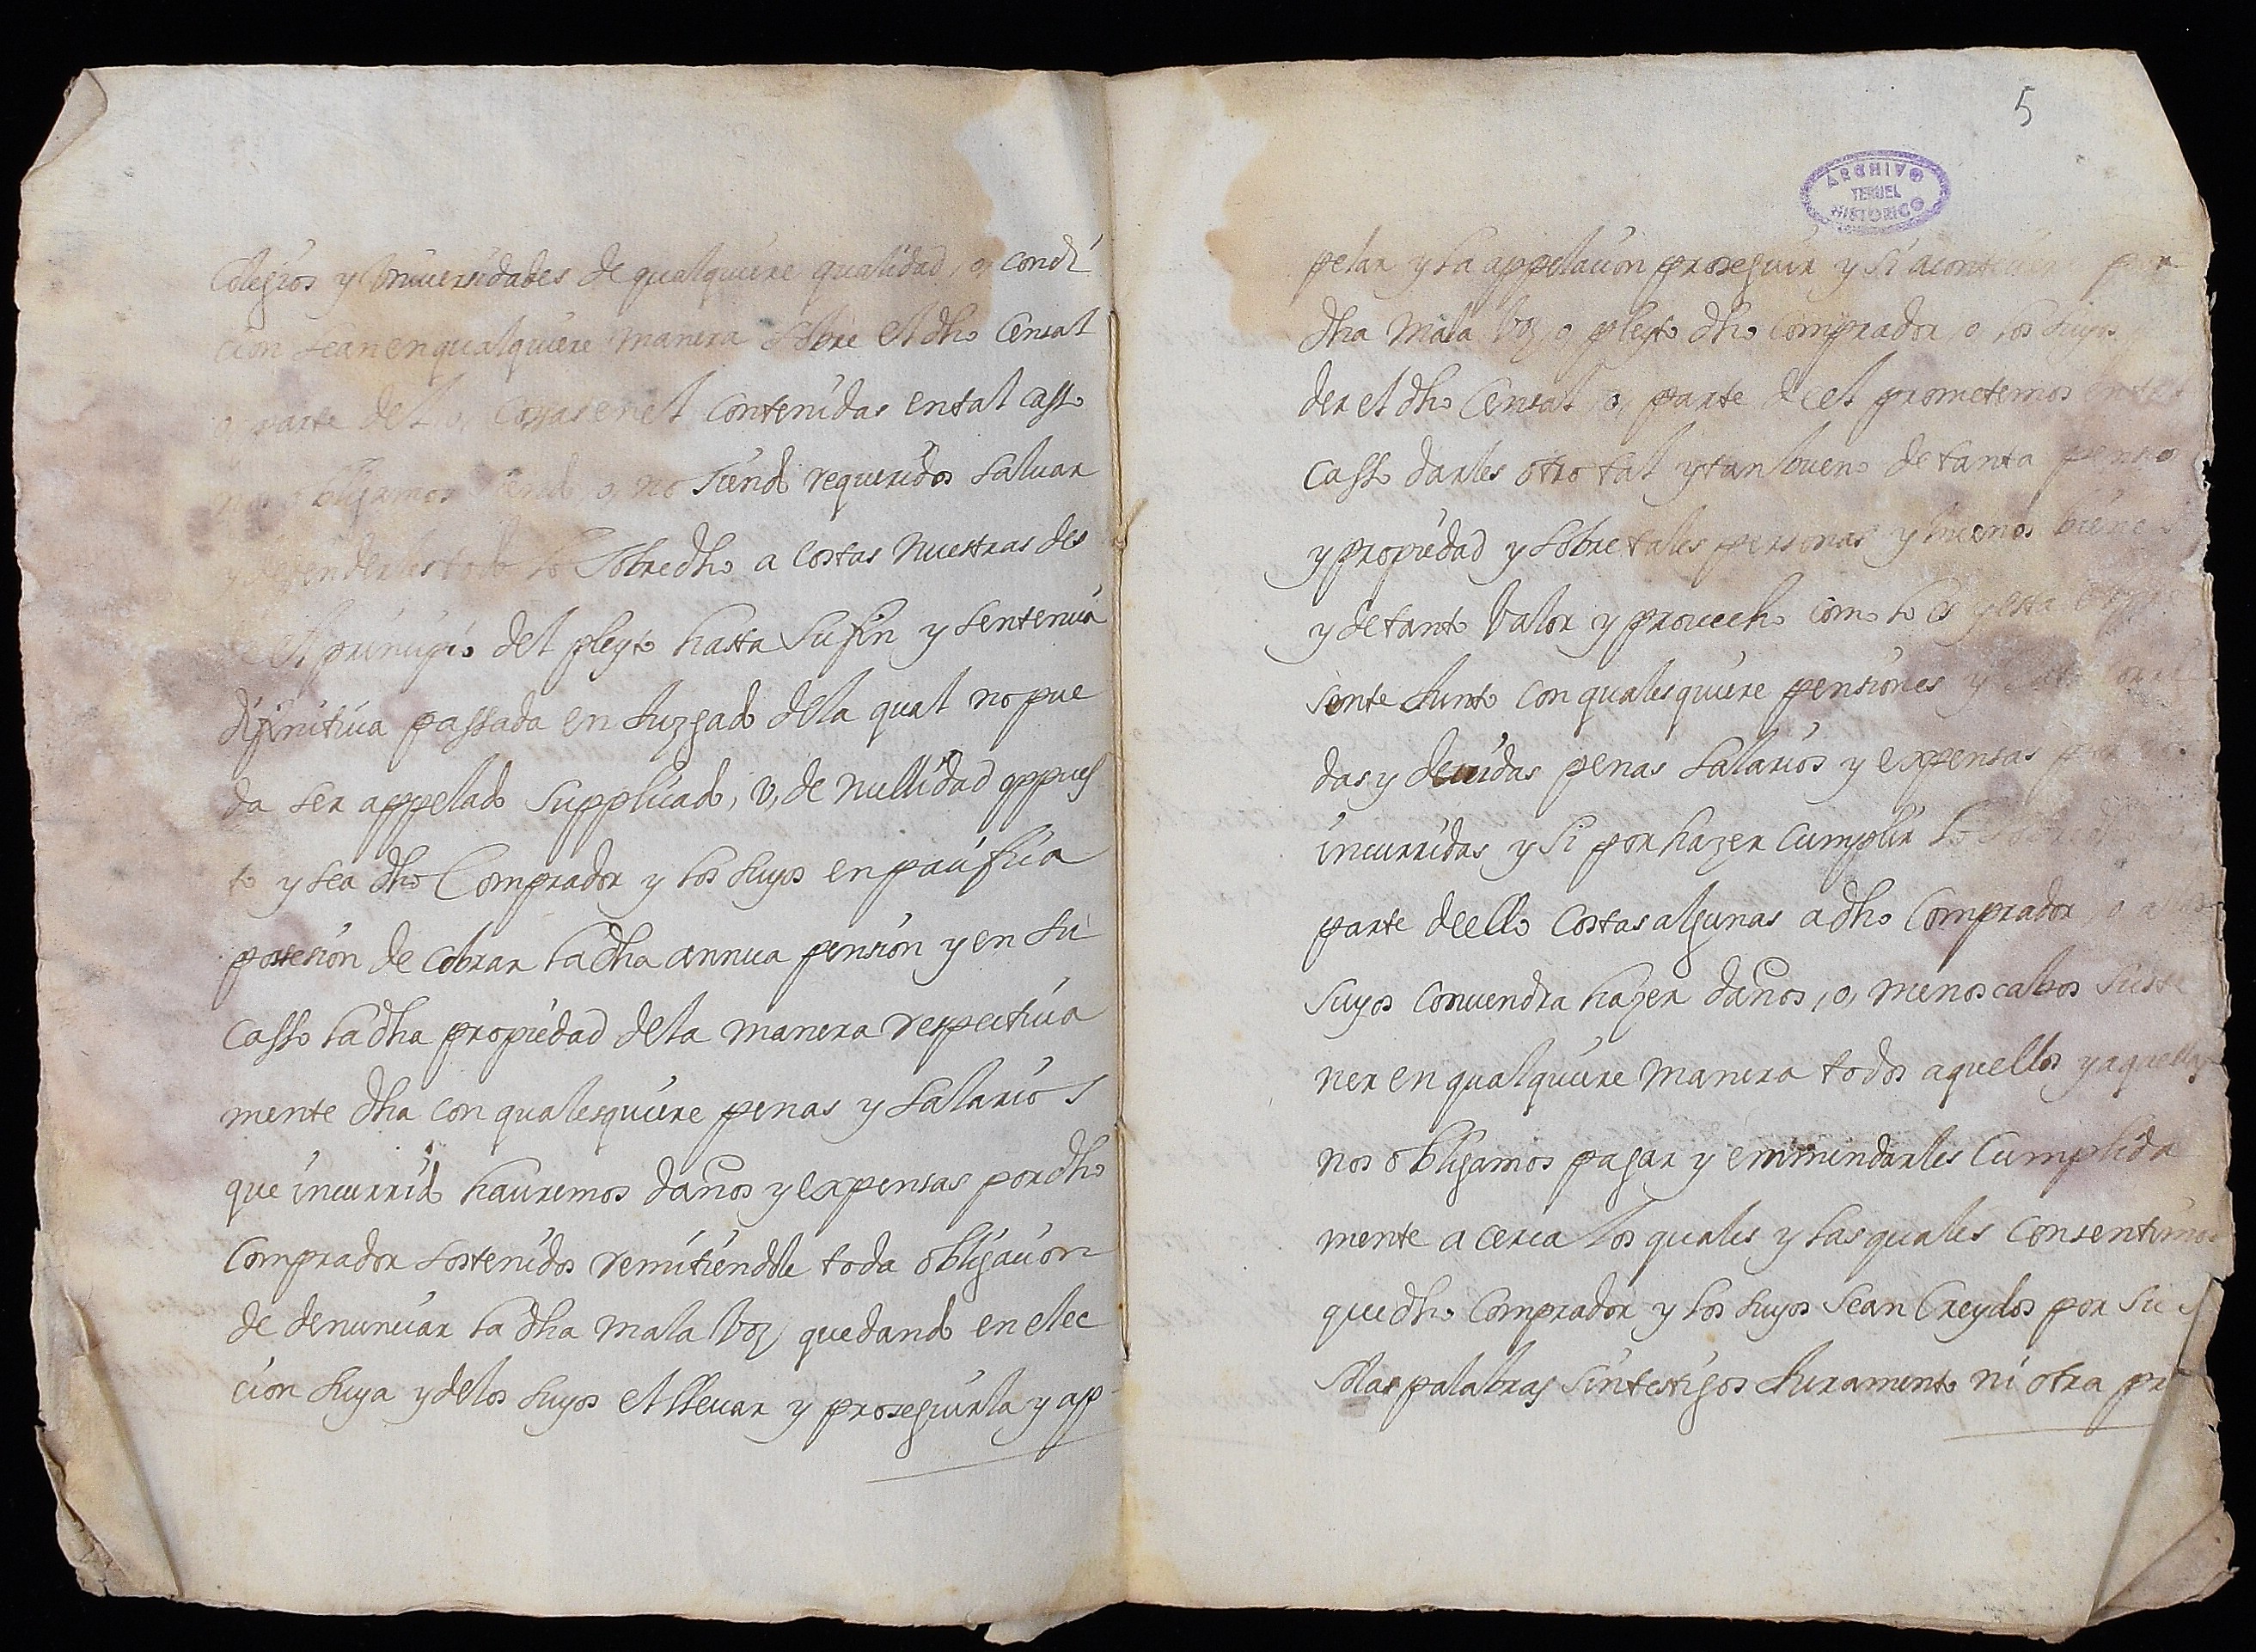 Colegios y Vniuersidades de qualquiere qualidad, o, condi
cion sean en qualquiere manera sobre el dho Censal
o, parte del, o, cossas en el contenidas en tal casso
nos obligamos siendo, o, no siendo requeridos saluar
y defenderles todo lo sobredho a costas nuestras des
de el principio del pleyto hasta su fin y sentencia
difinitiua passada en Juzgado dela qual no pue
da ser appelado supplicado, o, de nullidad oppues
to y sea dho Comprador y los suyos en pacifica
possesion de cobrar la dha annua pension y en su
casso la dha propiedad dela manera respectiua
mente dha con qualesquiere penas y salarios
que incurrido hauremos daños y expensas por dho
Comprador sostenidos remitiendole toda obligacion
de denunciar la dha mala voz quedando en elec
cion suya y de los suyos el lleuar y proseguirla y ap-
5
ARCHIVO
TERUEL
HISTORICO
pelar y la appelacion proseguir y si por
dha mala voz, o, pleyto dho comprador, o, los suyos
der el dho Censal, o, parte de el prometemos en tal
casso darles otro tal y tan bueno de tanta pensio
y propiedad y sobre tales personas y buenos bienes
y de tanto valor y prouecho como lo es y esta
sente Junto con qualesquiere pensiones y
das y deuidas penas salarios y expensas
incurridas y si por hazer cumplir lo
parte de ello costas algunas a dho Comprador, o a los
suyos conuendra hazer daños, o, menoscabos soste
ner en qualquiere manera todos aquellos y aquellas
nos obligamos pagar y emmindarles cumplida
mente a cerca los quales y las quales consentimos
que dho Comprador y los suyos sean Creydos por su s
solas palabras sin testigos Juramento ni otra pr